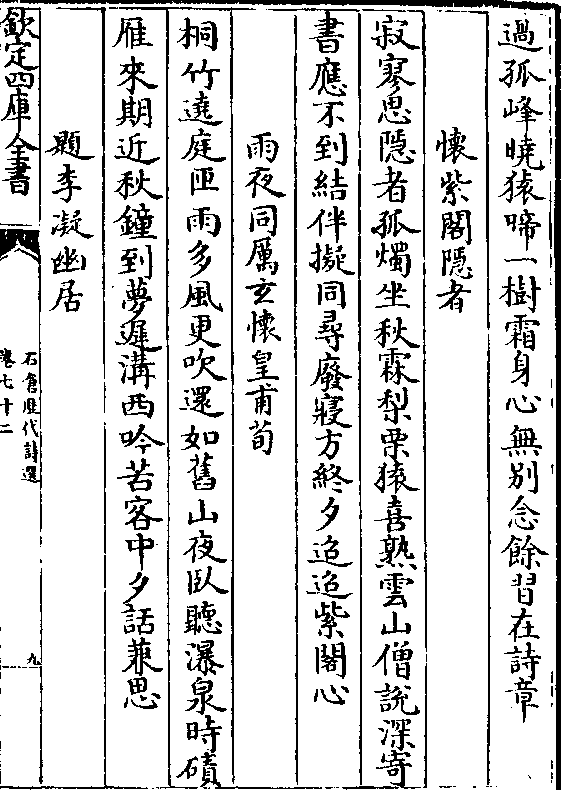 過孤峰曉猿啼一樹霜身心無別念餘習在詩章
懷紫閣隱者
寂寥思隱者孤燭坐秋霖梨栗猿喜熟雲山僧說深寄
書應不到結伴擬同尋廢寢方終夕迢迢紫閣心
雨夜同厲玄懷皇甫荀
桐竹遶庭匝雨多風更吹還如舊山夜臥聽瀑泉時磧
雁來期近秋鐘到夢遲溝西吟苦客中夕話兼思
題李凝幽居
欽定四庫全書
石倉歴代詩選
卷七十二
九